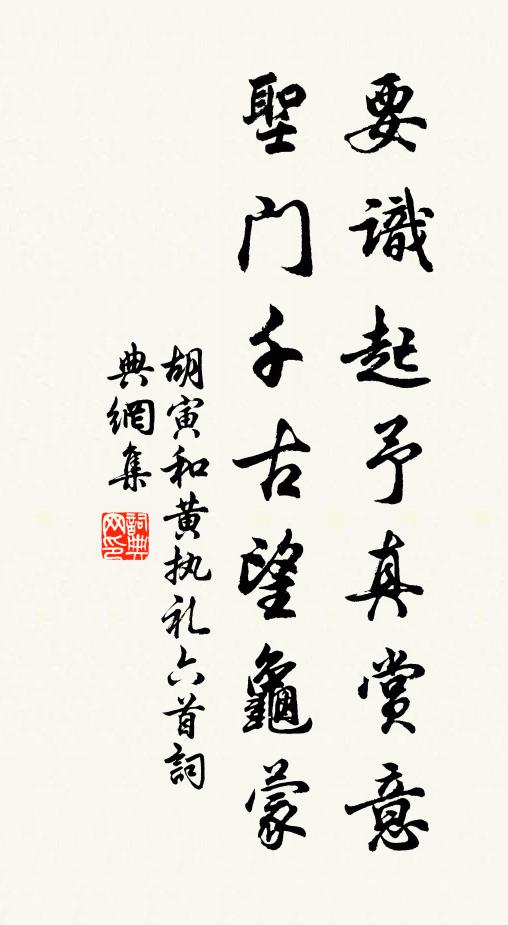 要識起予真賞意
聖门千古望龜蒙
胡寅和黄执礼六首詞
典網集
詞典
网印